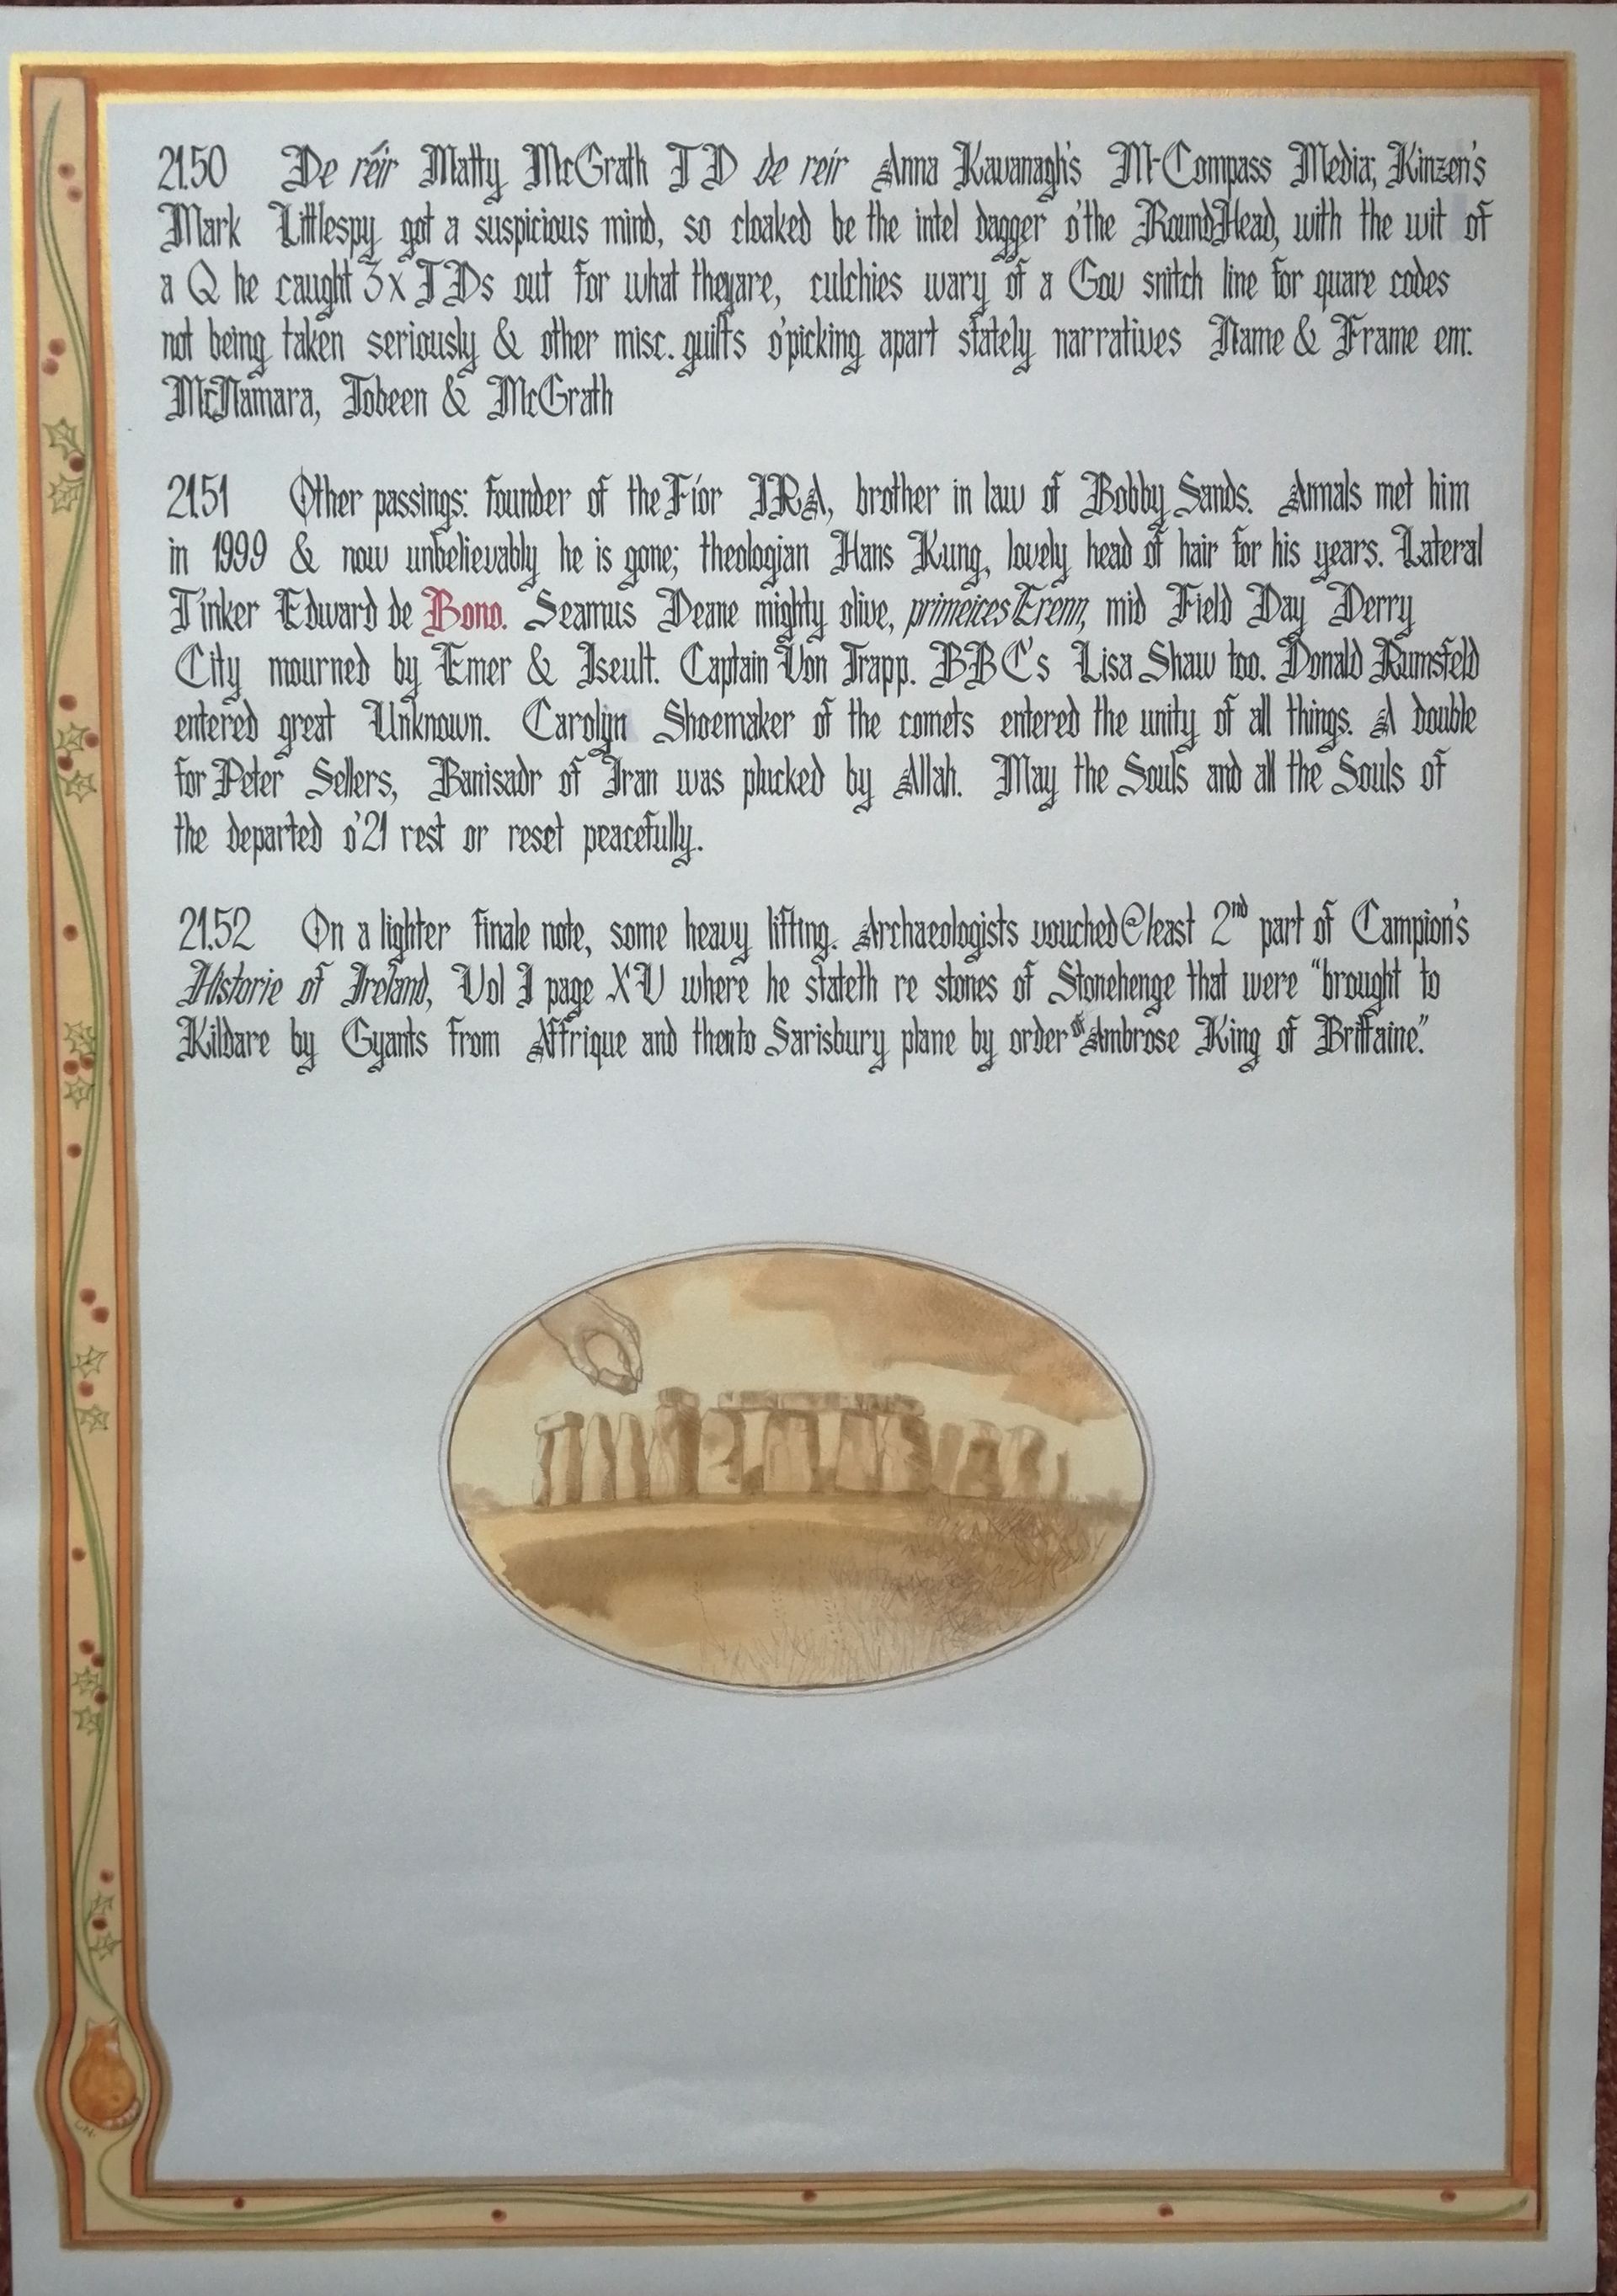 21.50 De réir Matty McGrath TD de reir Anna Kavanagh's M-Compass Media; Kinzen's
Mark Littlespy got a suspicious mind, so cloaked be the intel dagger o'the RoundHead, with the wit of
a Q he caught 3x TDs out for what theyare, culchies wary of a Gov snitch line for quare codes
not being taken seriously & other misc. guilts o'picking apart stately narratives Name & Frame em:
McNamara, Tobeen & McGrath
21.51 Other passings: founder of the Fíor IRA, brother in law of Bobby Sands. Annals met him
in 1999 & now unbelievably he is gone; theologian Hans Kung, lovely head of hair for his years. Lateral
Tinker Edward de Bono. Seamus Deane mighty olive, primeices Erenn, mid Field Day Derry
City mourned by Emer & Iseult. Captain Von Trapp. BBC's Lisa Shaw too. Donald Rumsfeld
entered great Unknown. Carolyn Shoemaker of the comets entered the unity of all things. A double
for Peter Sellers, Banisadr of Iran was plucked by Allah. May the Souls and all the Souls of
the departed o'21 rest or reset peacefully.
21.52 On a lighter finale note, some heavy lifting. Archaeologists vouched @ least 2nd part of Campion's
Historie of Ireland, Vol I page XV where he stateth re stones of Stonehenge that were "brought to
Kildare by Gyants from Affrique and thento Sarisbury plane by order of Ambrose King of Brittaine."